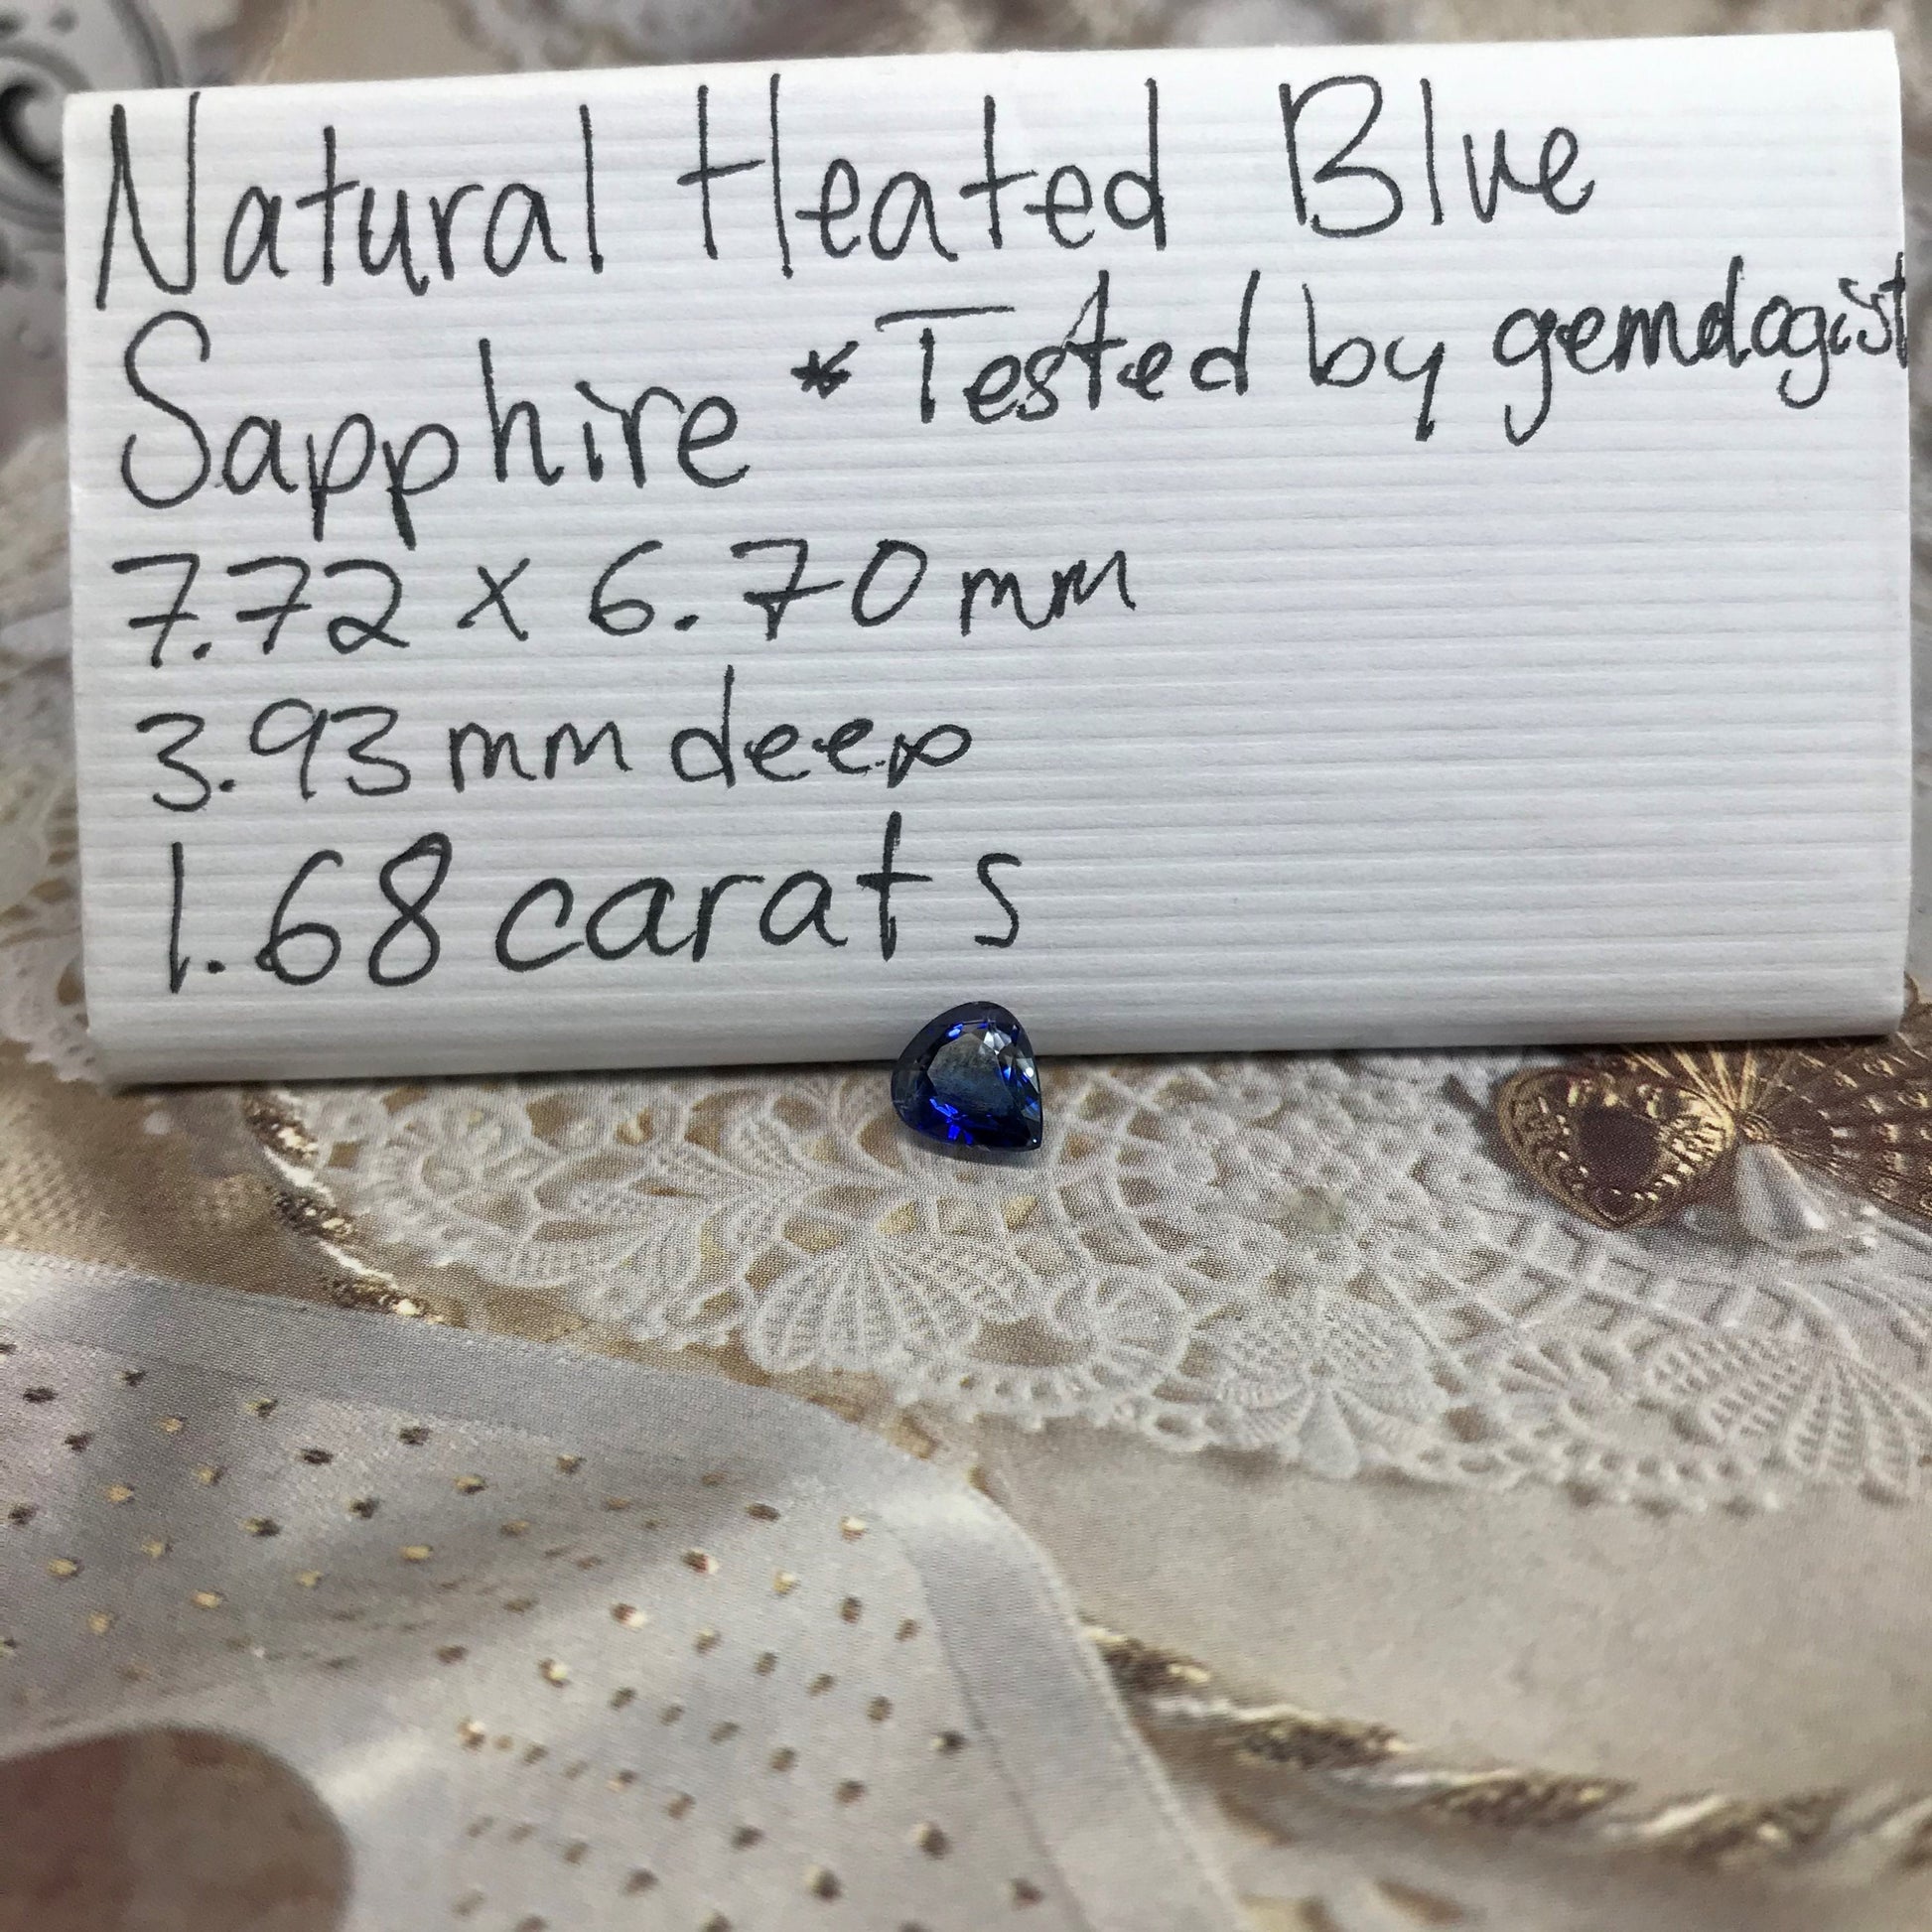 Natural Heated Blue
Sapphire *Tested by gemologist
7.72 x 6.70mm
3.93mm deep
1.68 carats